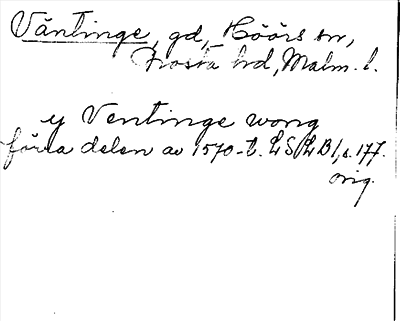 Väntinge, gd, Höörs sn,
Frosta hd, Malm. l.
ij Ventinge wong
förra delen av 1570-t. LSLB 1, s. 177.
orig.